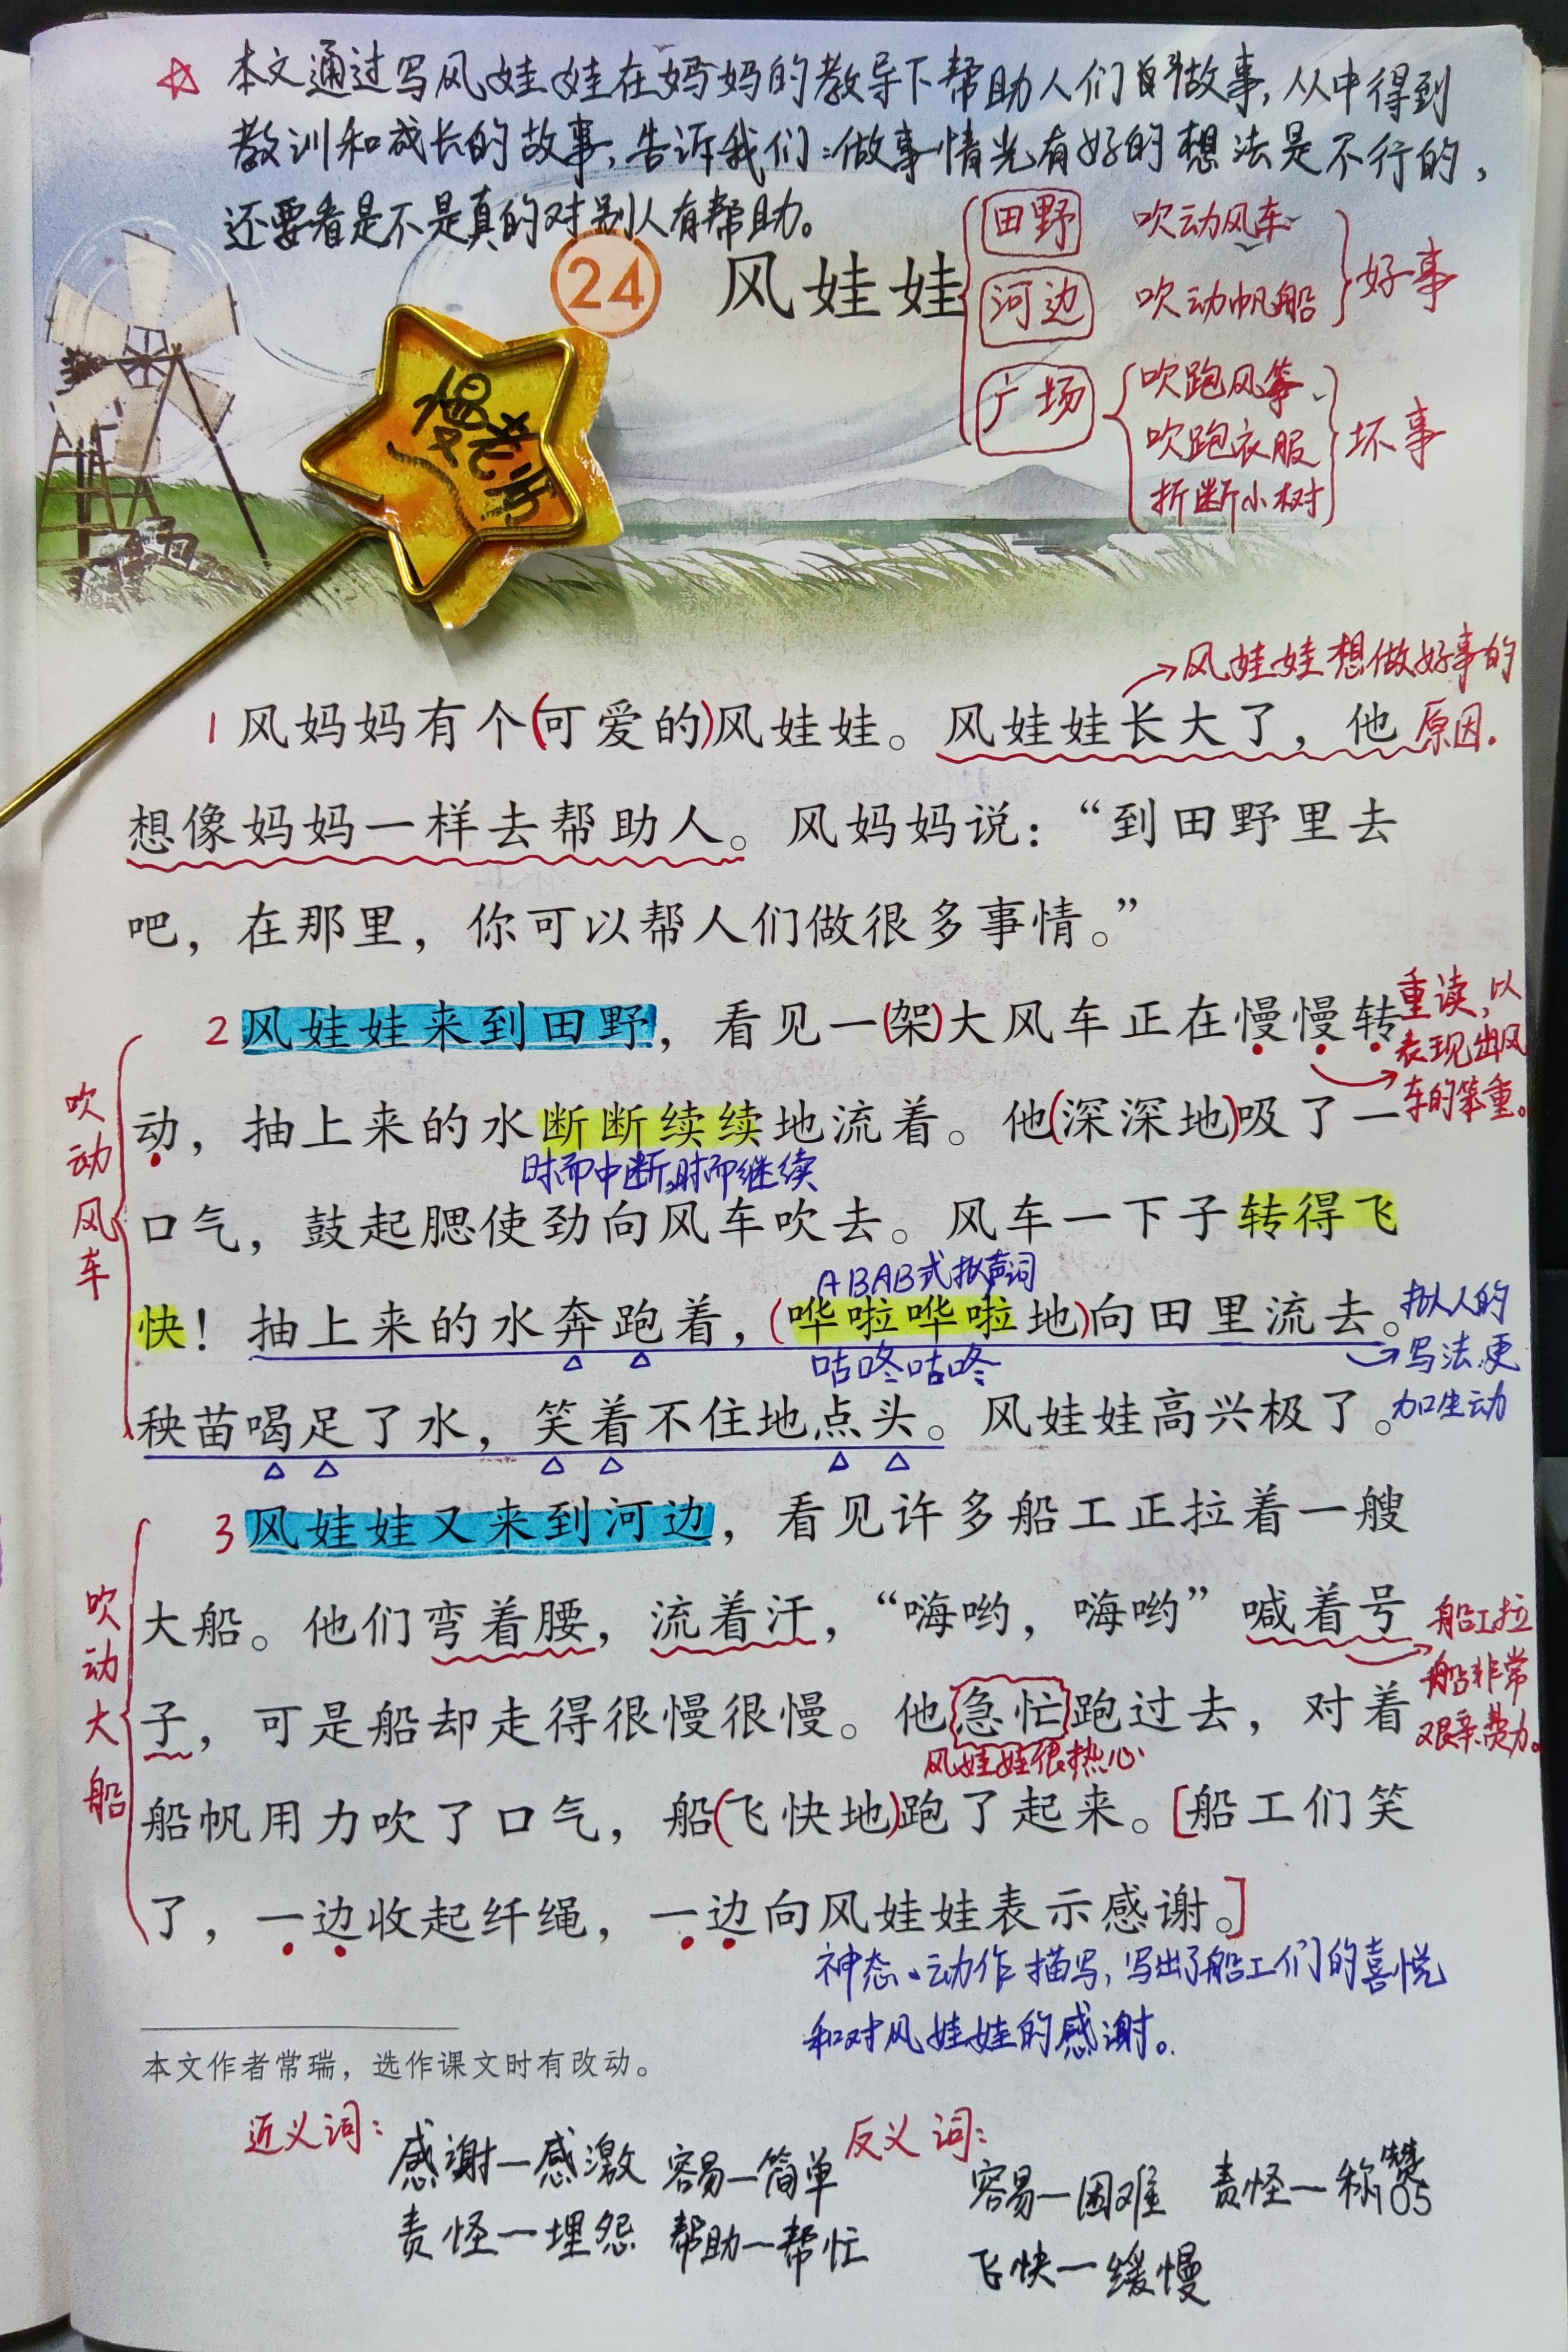 ☆ 本文通过写风娃娃在妈妈的教导下帮助人们做故事,从中得到
教训和成长的故事,告诉我们:做事情光有好的想法是不行的,
还要看是不是真的对别人有帮助。
24 风娃娃
田野 吹动风车
河边 吹动帆船
好事
广场 吹跑风筝、
吹跑衣服
折断小树
坏事
慢老师
→风娃娃想做好事的
原因.
1 风妈妈有个(可爱的)风娃娃。风娃娃长大了，他
想像妈妈一样去帮助人。风妈妈说：“到田野里去
吧，在那里，你可以帮人们做很多事情。”
2 风娃娃来到田野，看见一(架)大风车正在慢慢转
重读,以
表现出风
车的笨重。
吹动风车
动，抽上来的水断断续续地流着。他(深深地)吸了一
时而中断,时而继续
口气，鼓起腮使劲向风车吹去。风车一下子转得飞
ABAB式拟声词
快！抽上来的水奔跑着，(哗啦哗啦地)向田里流去。
咕咚咕咚
拟人的
写法.更
加生动
秧苗喝足了水，笑着不住地点头。风娃娃高兴极了。
3 风娃娃又来到河边，看见许多船工正拉着一艘
吹动大船
大船。他们弯着腰，流着汗，“嗨哟，嗨哟”喊着号
船工拉
船非常
艰辛.费力。
子，可是船却走得很慢很慢。他急忙跑过去，对着
风娃娃很热心
船帆用力吹了口气，船(飞快地)跑了起来。[船工们笑
了，一边收起纤绳，一边向风娃娃表示感谢。]
神态、动作描写,写出了船工们的喜悦
和对风娃娃的感谢。
本文作者常瑞，选作课文时有改动。
近义词:
感谢—感激 容易—简单
责怪—埋怨 帮助—帮忙
反义词:
容易—困难 责怪—称赞
飞快—缓慢
105